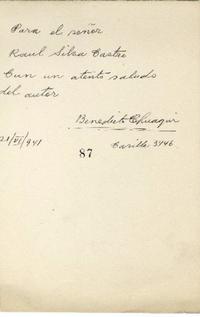 Para el señor
Raul Silva Castro
Con un atento saludo
del autor
Benedicto Chuaqui
21/VI/941
Casilla 3446
87